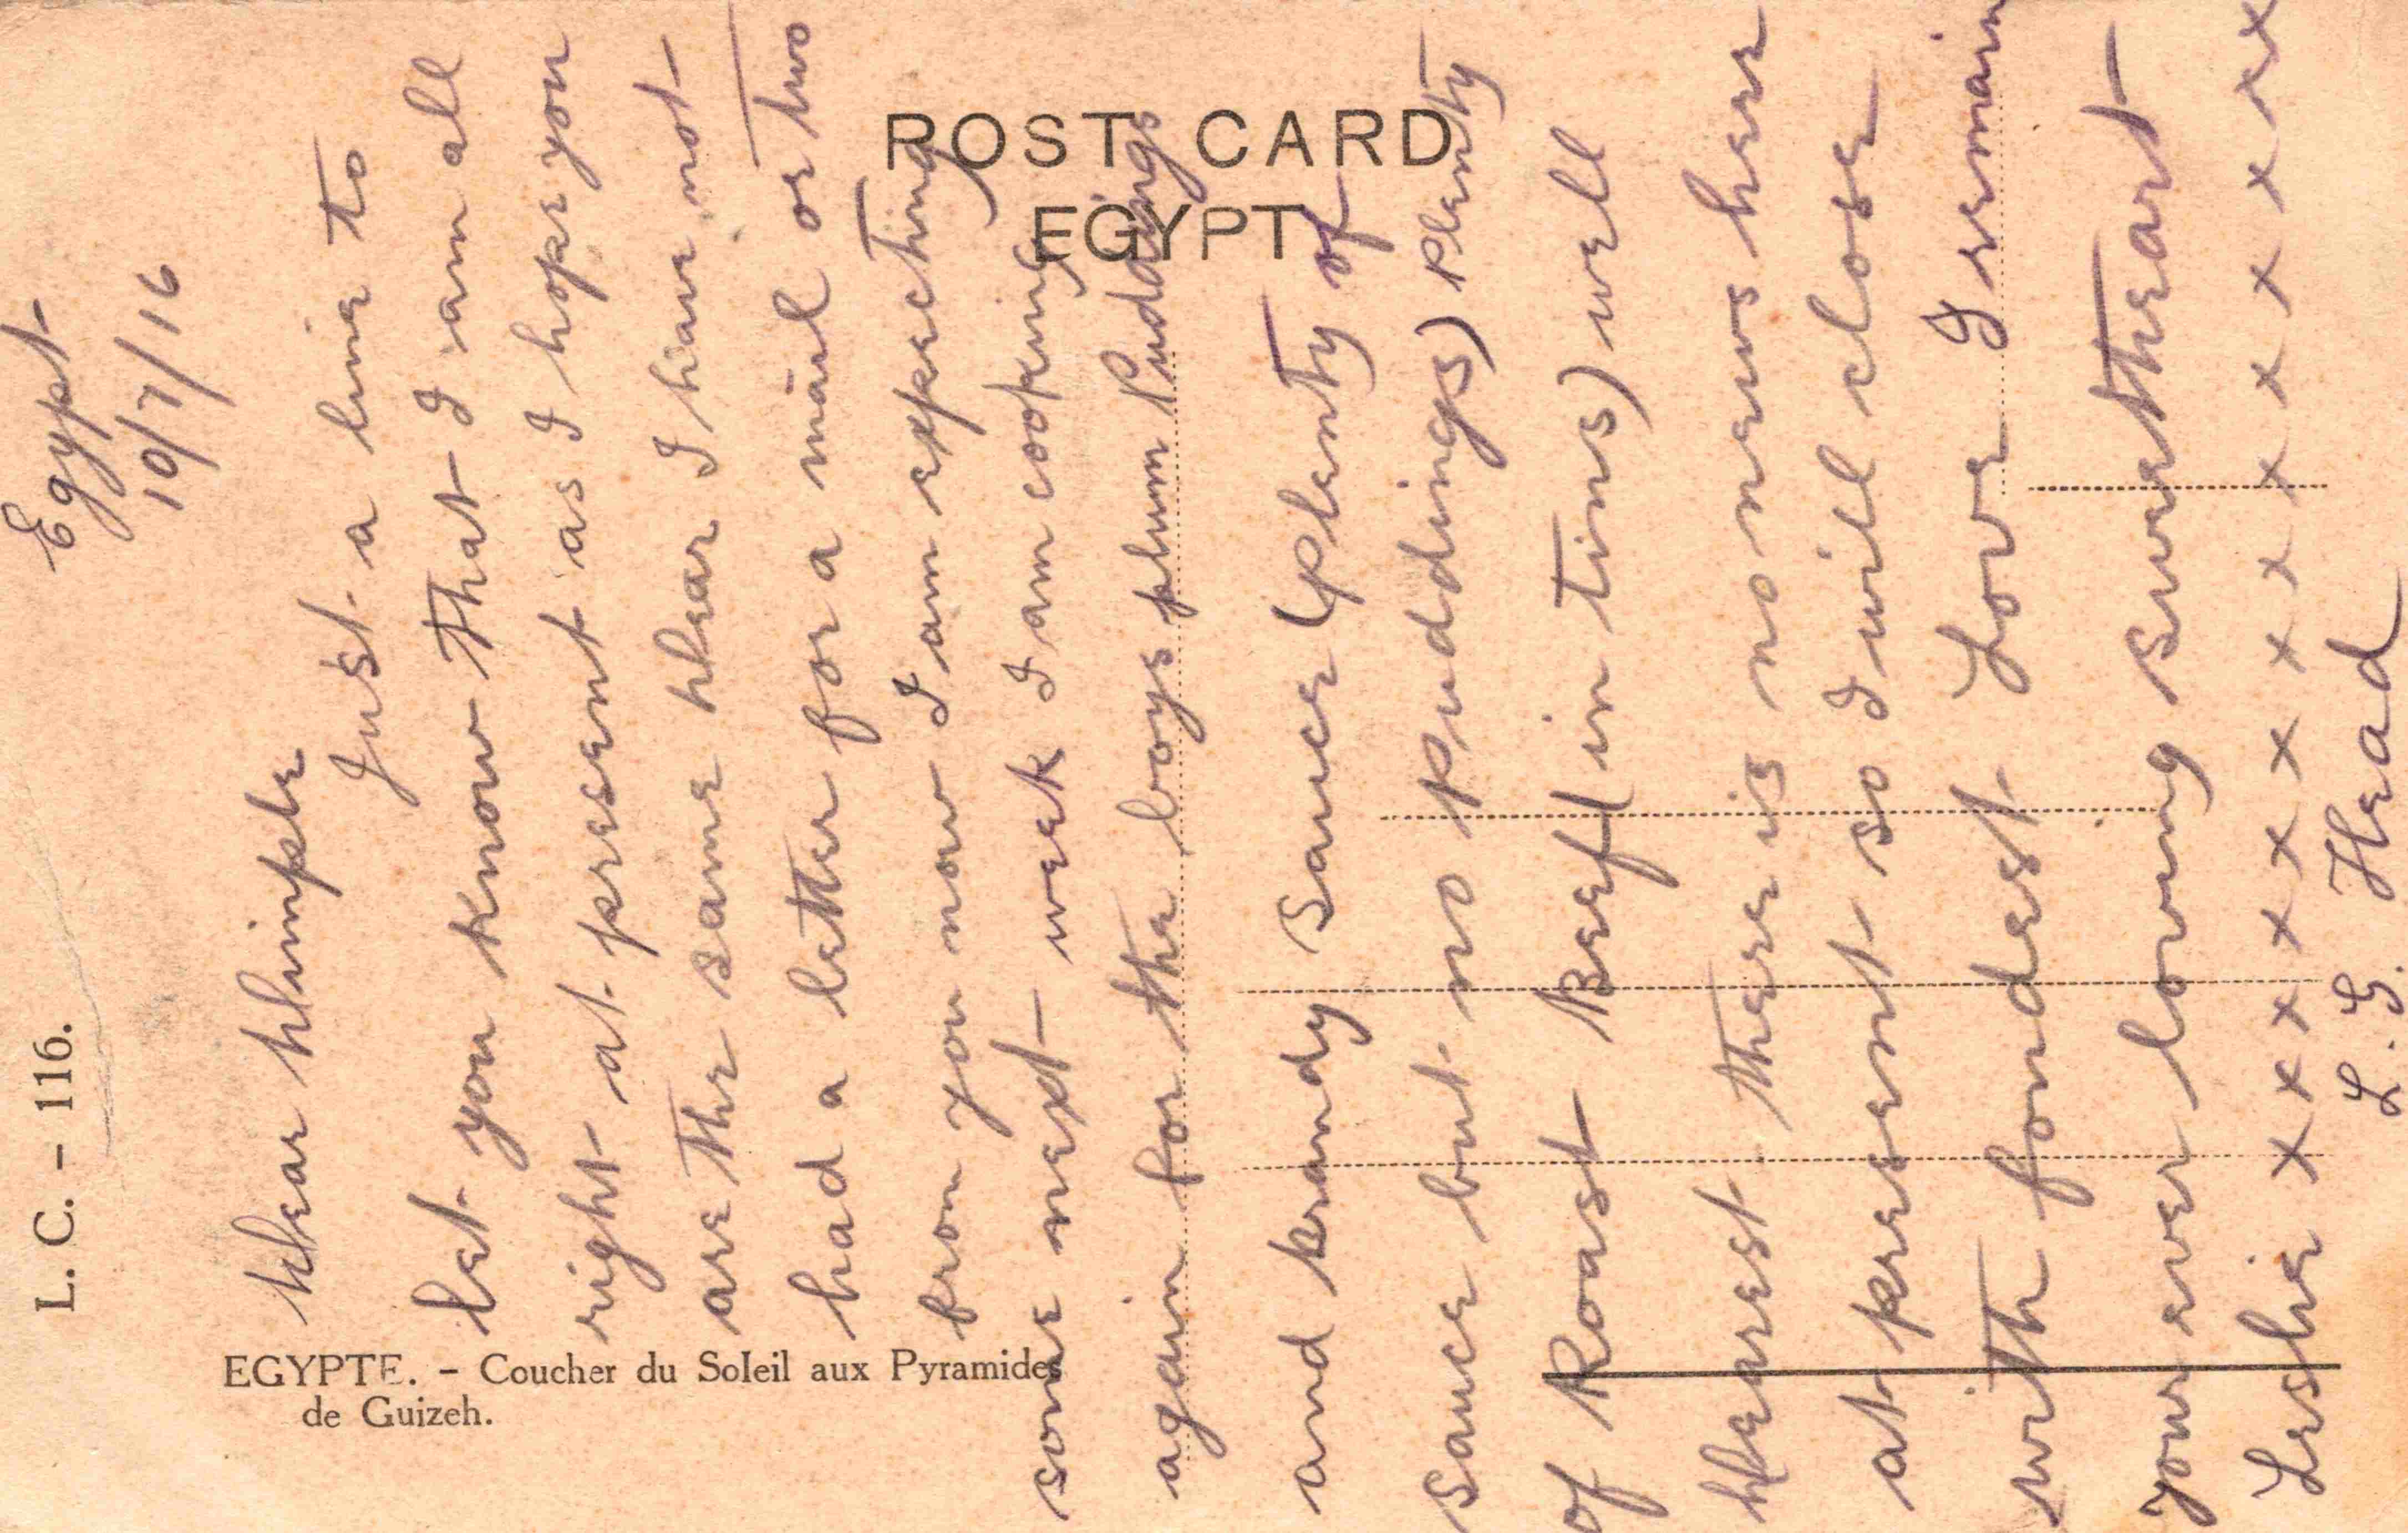 L. C. - 116.
POST CARD
EGYPT
EGYPTE. - Coucher du Soleil aux Pyramides
de Guizeh.
Egypt
19/7/16
Dear Dimple
Just a line to
let you know that I am all
right at present as I hope you
are the same Dear I have not
had a letter for a mail or two
from you now I am expecting
some next week I am cooking
again for the boys plum Puddings
and brandy sauce (plenty of
sauce but no puddings) plenty
of Roast Beef (in tins) well
Dearest there is no news here
at present so I will close
with fondest Love I remain
your ever loving sweetheart
Leslie x x x x x x x x x x x x x x
L. G. Head